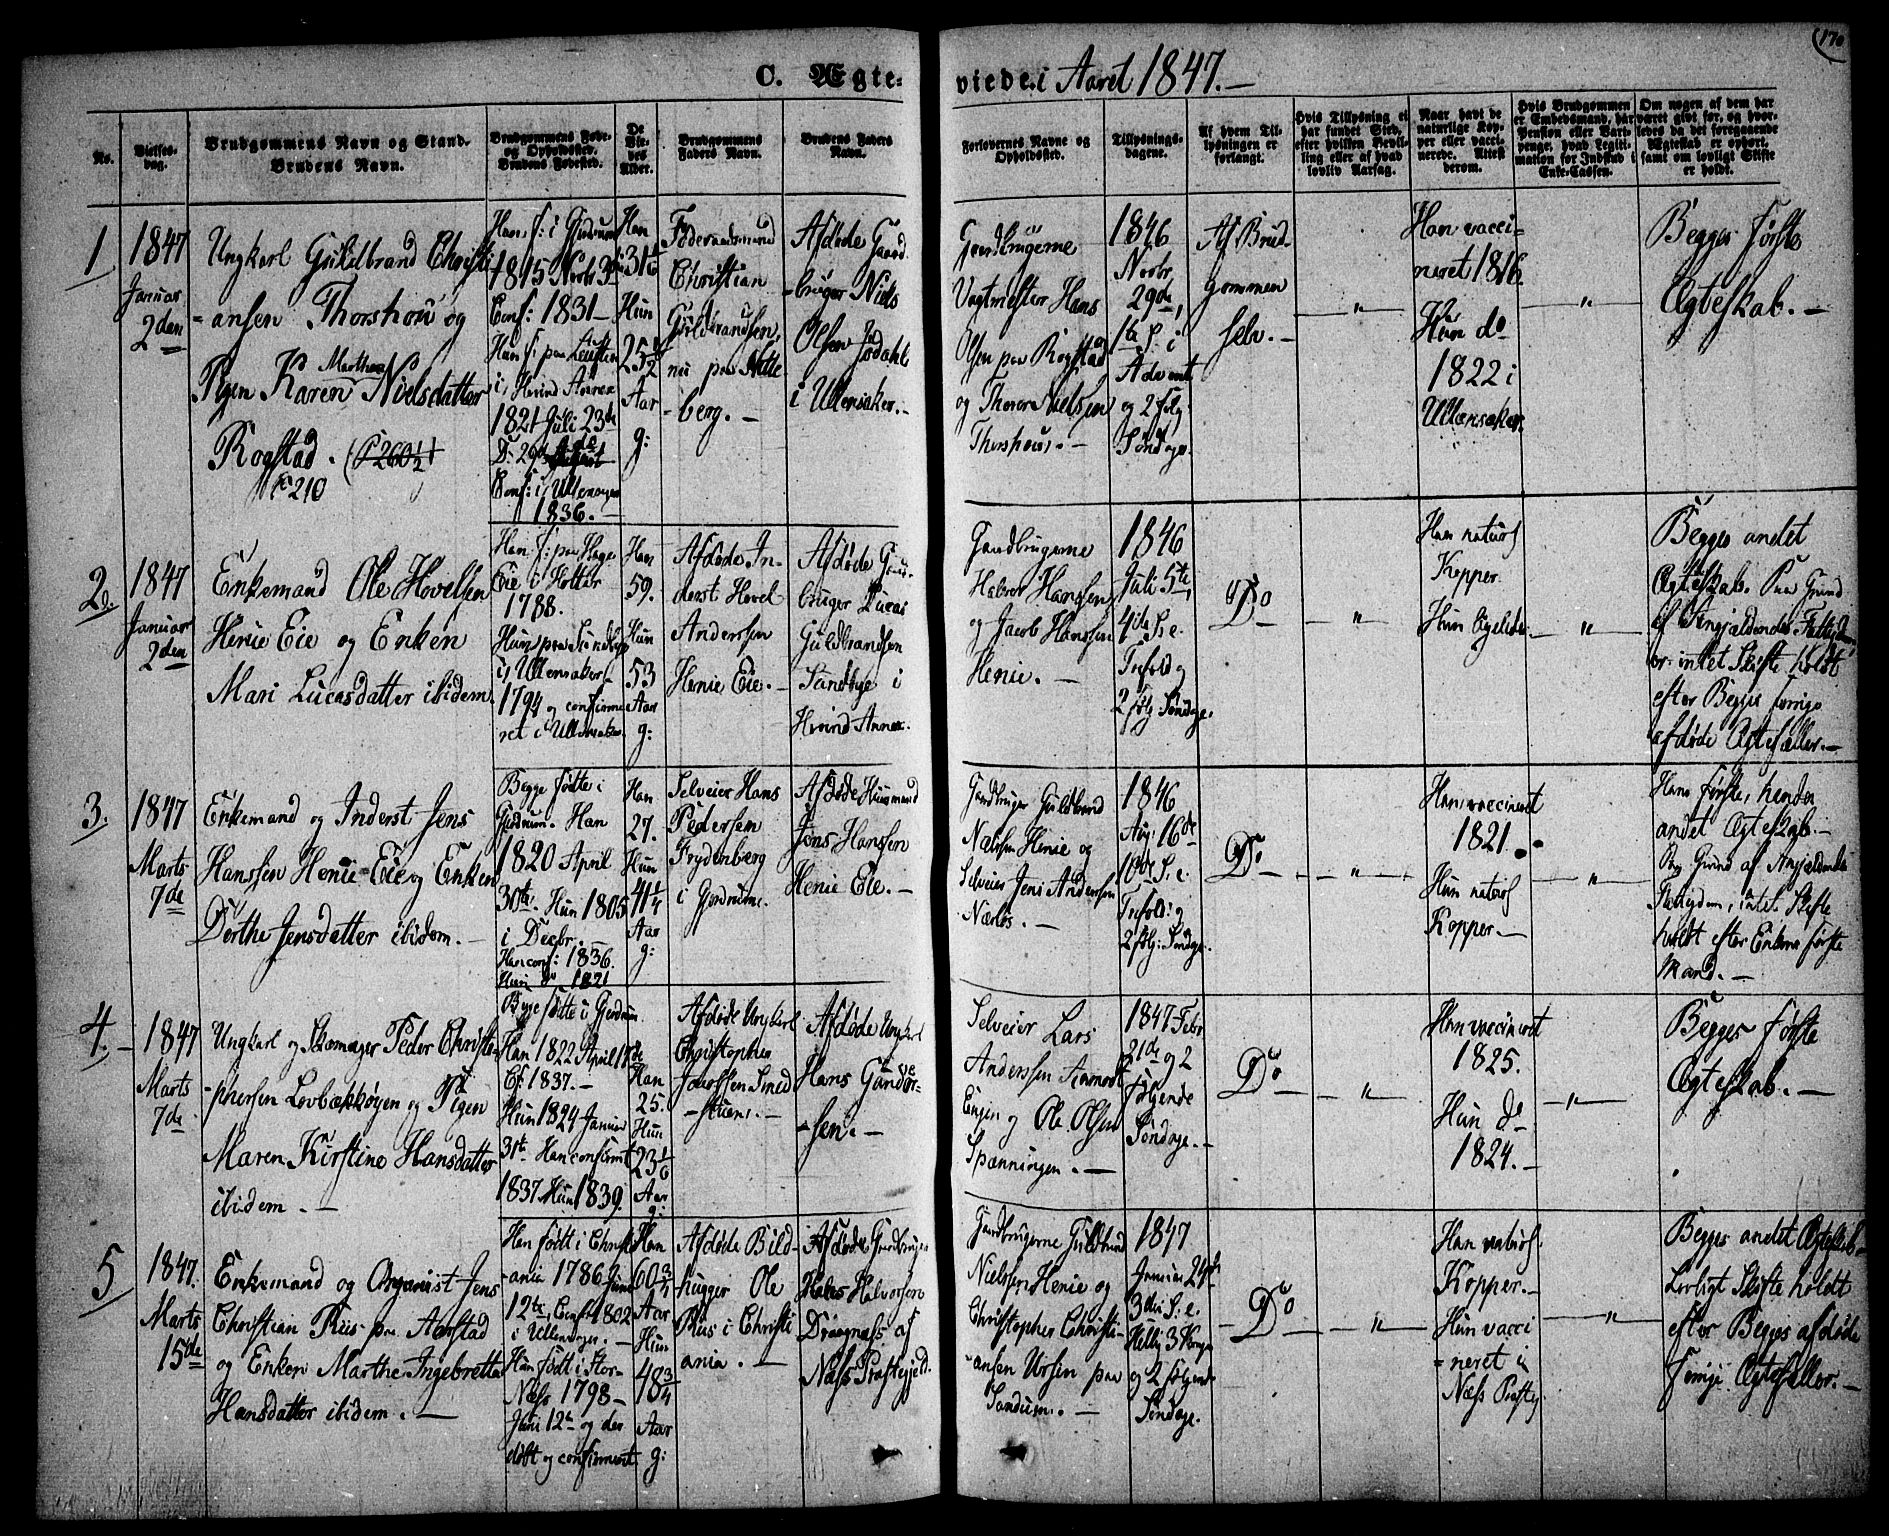 C. Ægte-
viede i Aaret 1847.-
170
No.
Vielses-
dag.
Brudgommens Navn og Stand.
Brudens Navn.
Brudgommens Føde-
og Opholdsted.
Brudens Fødested.
De
Vie-
des
Alder.
Brudgommens
Faders Navn.
Brudens Faders
Navn.
Forlovernes Navne og
Opholdsted.
Tillysnings-
dagene.
Af hvem Til-
lysningen er
forlangt.
Hvis Tillysning ei
har fundet Sted,
efter hvilken Bevil-
ling eller af hvad
lovlig Aarsag.
Naar havt de
naturlige Kop-
per eller vacci-
nerede. Attest
derom.
Hvis Brudgommen
er Embedsmand, har
Pension eller Vart-
penge, hvad Legiti-
mation for Indskud i
Enke-Cassen.
Om nogen af dem har
været gift før, og hvor-
ledes da det foregaaende
Ægteskab er ophørt,
samt om lovligt Skifte
er holdt.
1
1847
Januar
2den
Ungkarl Guldbrand Christi-
ansen Thorshou og
Pigen Karen Marthea Nielsdatter
Rogstad. (P 260½)
P 210
Han f: i Gjerdrum
1815 Novb 3
Conf: 1831-
Hun f: paa
i Hovind Annex
1821 Juli 23de
D: 29de
Conf: i Ullensager
1836.-
Han
31
Hun
25½
Aar
g:
Føderaadsmand
Christian
Guldbrandsen,
nu paa
berg.-
Afdøde Gaard-
bruger Niels
Olsen Jødahl
i Ullensaker.-
Gaardbrugerne
Vagtmester Hans
Olsen paa Rogstad
og Thorer Nielsen
Thorshoug.-
1846
Novbr
29de,
1te S. i
Advent
og 2 følg
Søndage.
Af Brud-
gommen
selv.-
"
Han vacci-
neret 1816.
Hun do
1822 i
Ullensaker.
"
Begges første
Ægteskab.-
2.
1847
Januar
2den
Enkemand Ole Hovelsen
Henie Eie og Enken
Mari Lucasdatter ibidem.
Han f: paa
Eie i Holter
1788.
Hun paa Sundbye
i Ullensaker
1794 og confirme
ret i Ullensaker.
Han
59.
Hun
53
Aar
g:
Afdøde In-
derst Hovel
Anderssen
Henie Eie.-
Afdøde Gaard-
bruger Lucas
Guldbrandsen
Sundbye i
Hovind Annex.
Gaardbrugerne
Halvor Hanssen
og Jacob Hanssen
Henie.-
1846
Juli 5te,
4de S. e.
Trefold og
2 følg. Søndage.
Do
"
Han naturl
Kopper.
Hun ligeledes
"
Begges andet
Ægteskab. Paa Grund
af Angjældendes Fattigdom
er intet Skifte holdt
efter Begges forrige
afdøde Ægtefæller.-
3.
1847
Marts
7de
Enkemand og Inderst Jens
Hanssen Henie Eie og Enken
Dorthe Jensdatter ibidem.-
Begge fødte i
Gjerdrum. Han
1820 April
30te. Hun 1805
i Decbr.-
Han conf: 1836.
Hun do 1821
Han
27.
Hun
41¼
Aar
g:
Selveier Hans
Pedersen
Frydenberg
i Gjerdrum.
Afdøde Huusmand
Jens Hanssen
Henie Eie.-
Gaardbruger Guldbrand
Nielsen Henie og
Selveier Jens Anderssen
Næräs.-
1846
Aug: 16de
10de S. e.
Trefold: og
2 følg: Søndage.
Do
"
Han vaccineret
1821.
Hun naturl
Kopper.-
"
Hans første, hendes
andet Ægteskab.-
Paa Grund af Angjældendes
Fattigdom, intet Skifte
holdt efter Enkens første
Mand.-
4.
1847
Marts
7de
Ungkarl og Skomager Peder Christo-
phersen Lovbækhøgen og Pigen
Maren Kirstine Hansdatter
ibidem.-
Begge fødte i Gjerdrum.
Han 1822 April 17de
Cf. 1837.-
Hun 1824 Januar
31te Han confirmt
1837 Hun 1839.
Han
25.
Hun
23
Aar
g:
Afdøde Ungkarl
Christopher
Smed-
stuen.-
Afdøde Ungkarl
Hans Gunder-
sen.-
Selveier Lars
Anderssen
Engen og Ole Olsen
Spænningen.-
1847 Febr
21de og 2
følgende
Søndage.-
Do
"
Han vaccineret
1825.
Hun do
1824.-
"
Begges første
Ægteskab.-
5
1847.
Marts
15de
Enkemand og Organist Jens
Christian Riis paa Aamstad
og Enken Marthe Ingebretta
Hansdatter ibidem.-
Han født i Christi
ania 1786 Juni
12te, Conf: 1802
i Ullensager.-
Hun født i Stor-
Næss 1798-
Juni 12te og der
døbt og confirmeret
Han
60¾
Aar
Hun
48¾
Aar
g:
Afdøde Bild-
hugger Ole
Riis i Christi
ania.-
Afdøde Gaardbruger
Hans Halvorsen
Dragnæss af
Næss Præstegjeld.
Gaardbrugerne Guldbrand
Nielsen Henie og
Christopher Christi-
ansen Ursen paa
Sandum.-
1847
Januar 24de
3die S. e.
Hellig 3 Konger
og 2 følgende
Søndage.
Do
"
Han naturl
Kopper.-
Hun vacci
neret i
Næss Præstegj
"
Begges andet Ægteskab-
Lovligt Skifte holdt
efter Begges afdøde
forrige Ægtefæller.-